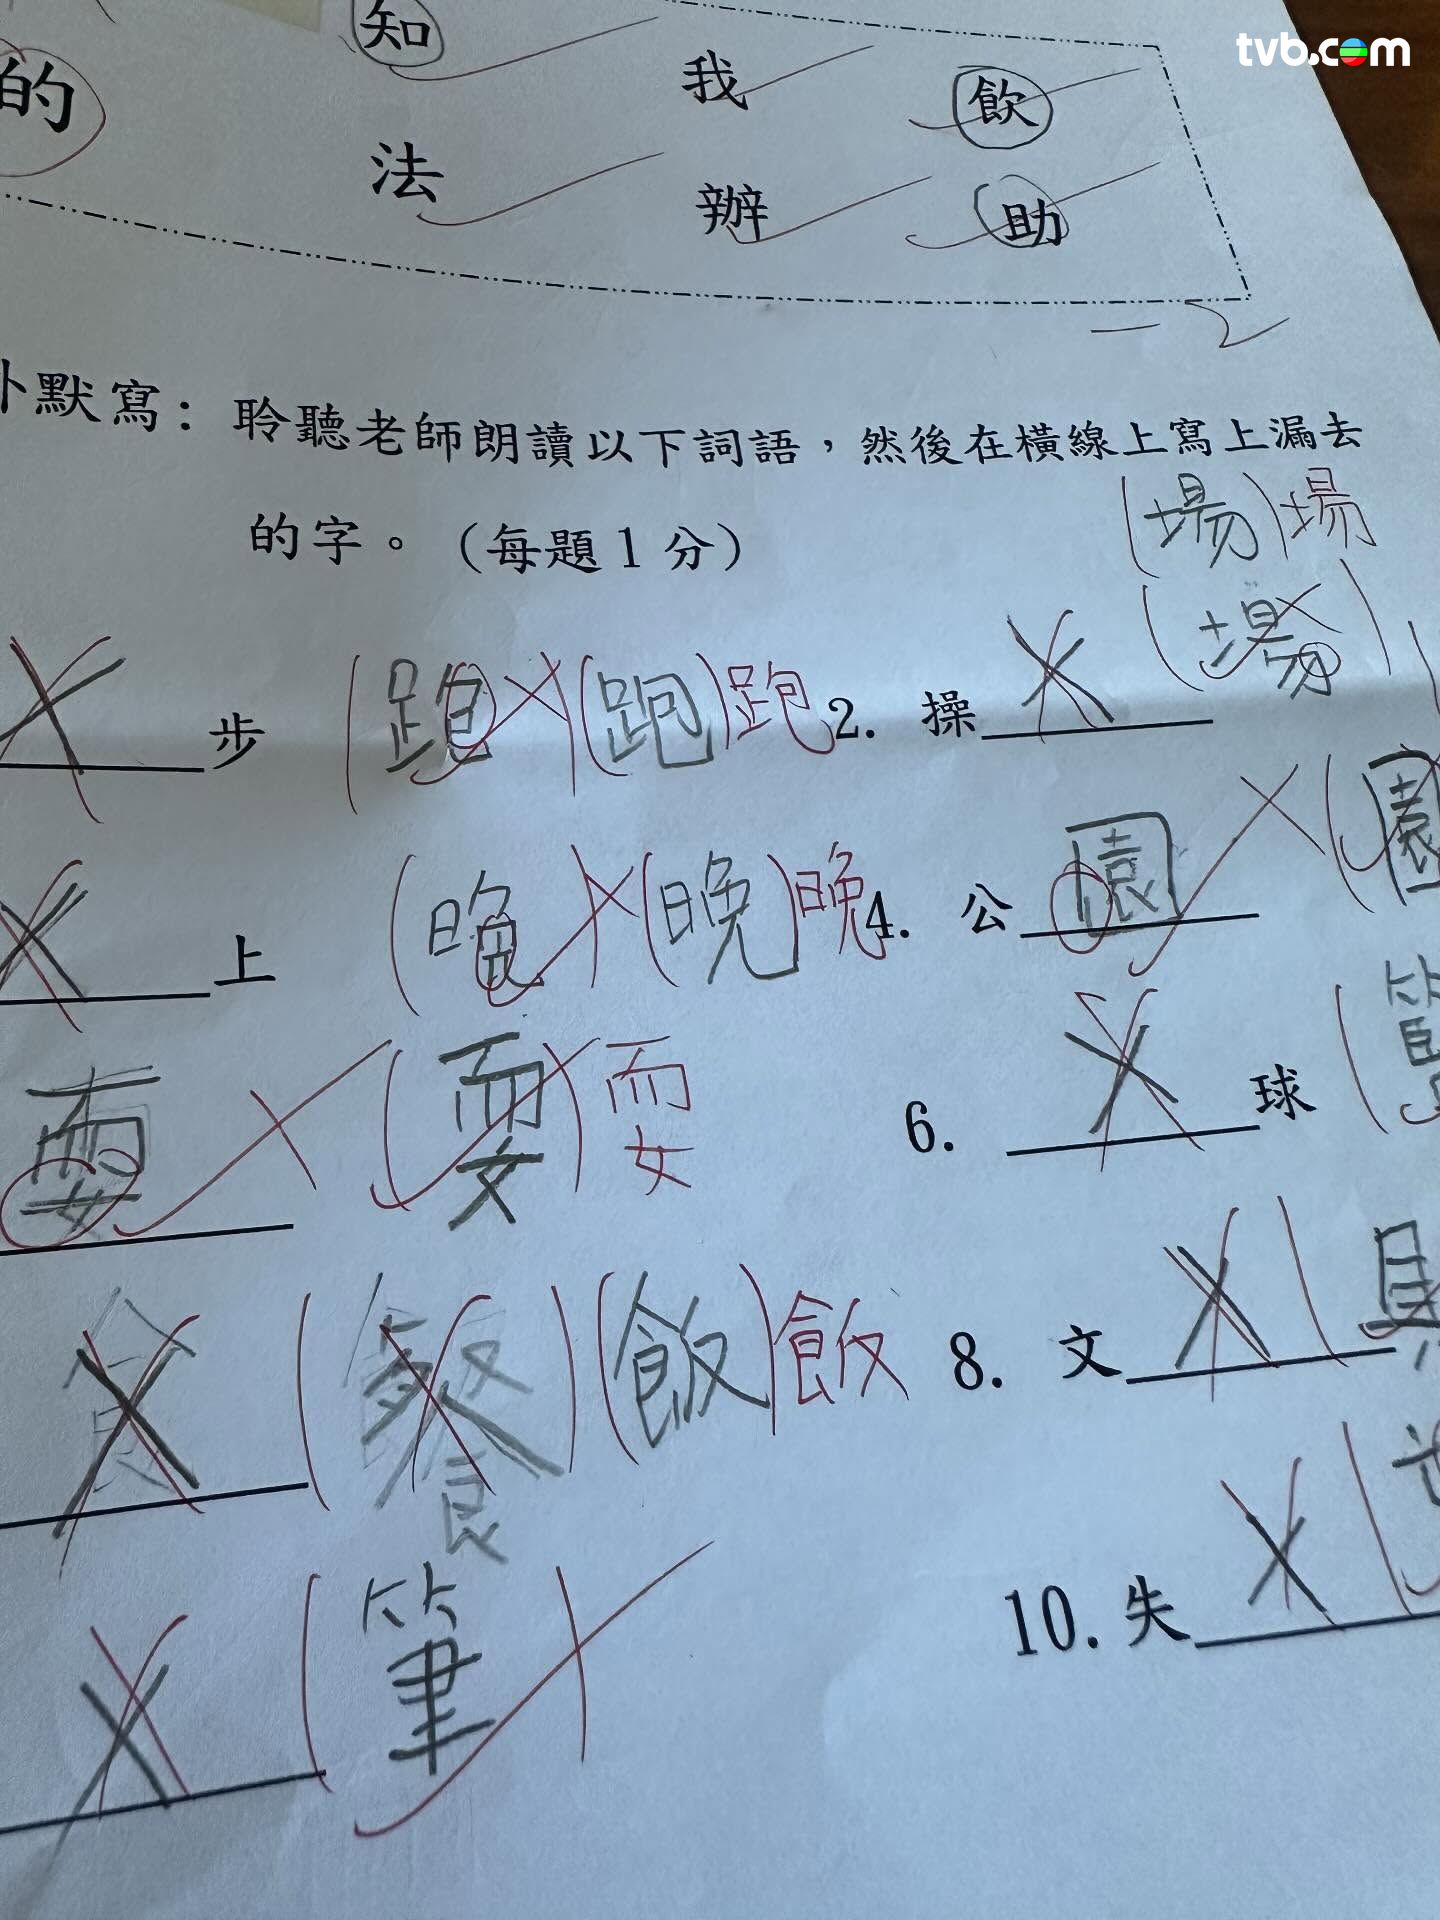 tvb.com
知 我 飲
的 法 辦 助
默寫：聆聽老師朗讀以下詞語，然後在橫線上寫上漏去
的字。（每題1分）
(場)場
步 (跑)跑 2. 操
上 (晚)晚 4. 公園
耍 (耍)耍 6. 球
(飯)飯 8. 文
(筆 10. 失